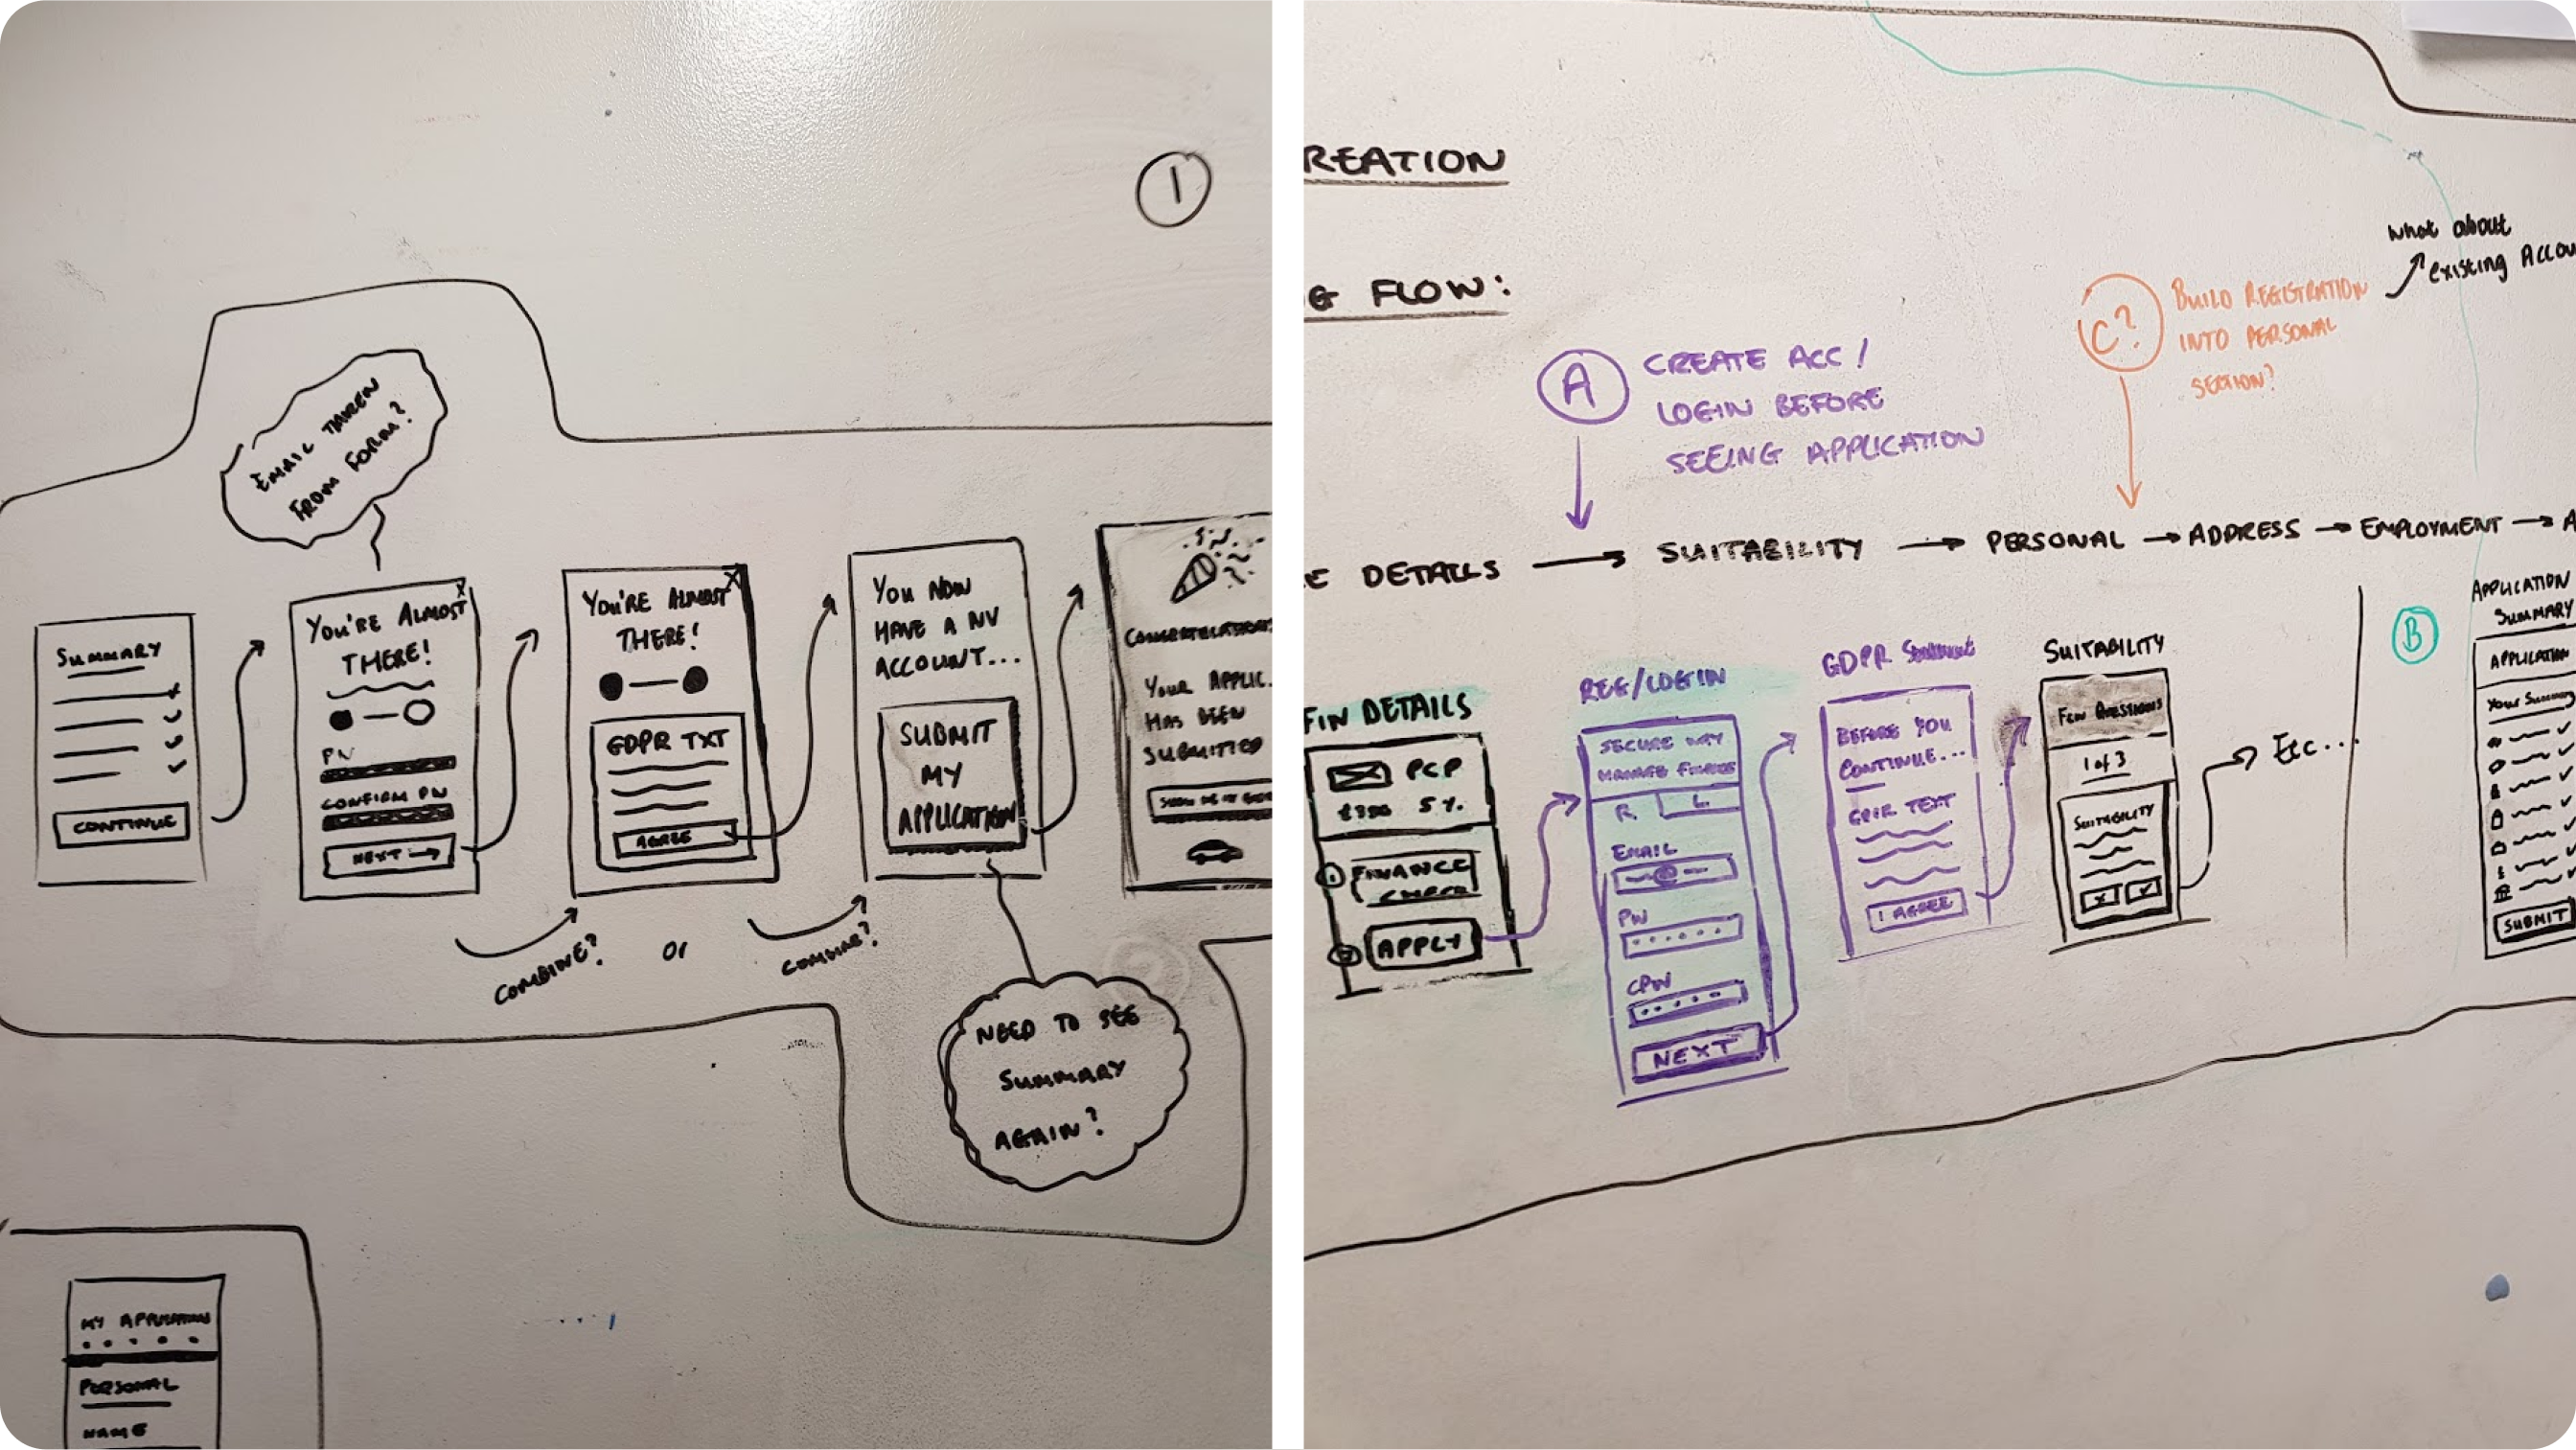 1
EMAIL TAKEN
FROM FORM?
SUMMARY
CONTINUE
YOU'RE ALMOST
THERE!
CONFIRM
NEXT →
YOU'RE ALMOST
THERE!
GDPR TXT
AGREE
YOU NOW
HAVE A NV
ACCOUNT...
SUBMIT
MY
APPLICATION
CONGRATULATIONS
YOUR APPLIC.
HAS BEEN
SUBMITTED
COMBINE?
or
COMBINE?
NEED TO SEE
SUMMARY
AGAIN?
MY APPLICATION
PERSONAL
NAME
REATION
G FLOW:
A
CREATE ACC /
LOGIN BEFORE
SEEING APPLICATION
C?
BUILD REGISTRATION
INTO PERSONAL
SECTION?
What about
existing Accou
E DETAILS → SUITABILITY → PERSONAL → ADDRESS → EMPLOYMENT → A
FIN DETAILS
PCP
5%
FINANCE
CHECK
APPLY
REG/LOGIN
SECURE WAY
MANAGE
R. L.
EMAIL
@
PW
CPW
NEXT
GDPR
BEFORE YOU
CONTINUE...
GDPR TEXT
I AGREE
SUITABILITY
FEW QUESTIONS
1 of 3
SUITABILITY
Etc...
B
APPLICATION
SUMMARY
APPLICATION
YOUR SUMMARY
SUBMIT